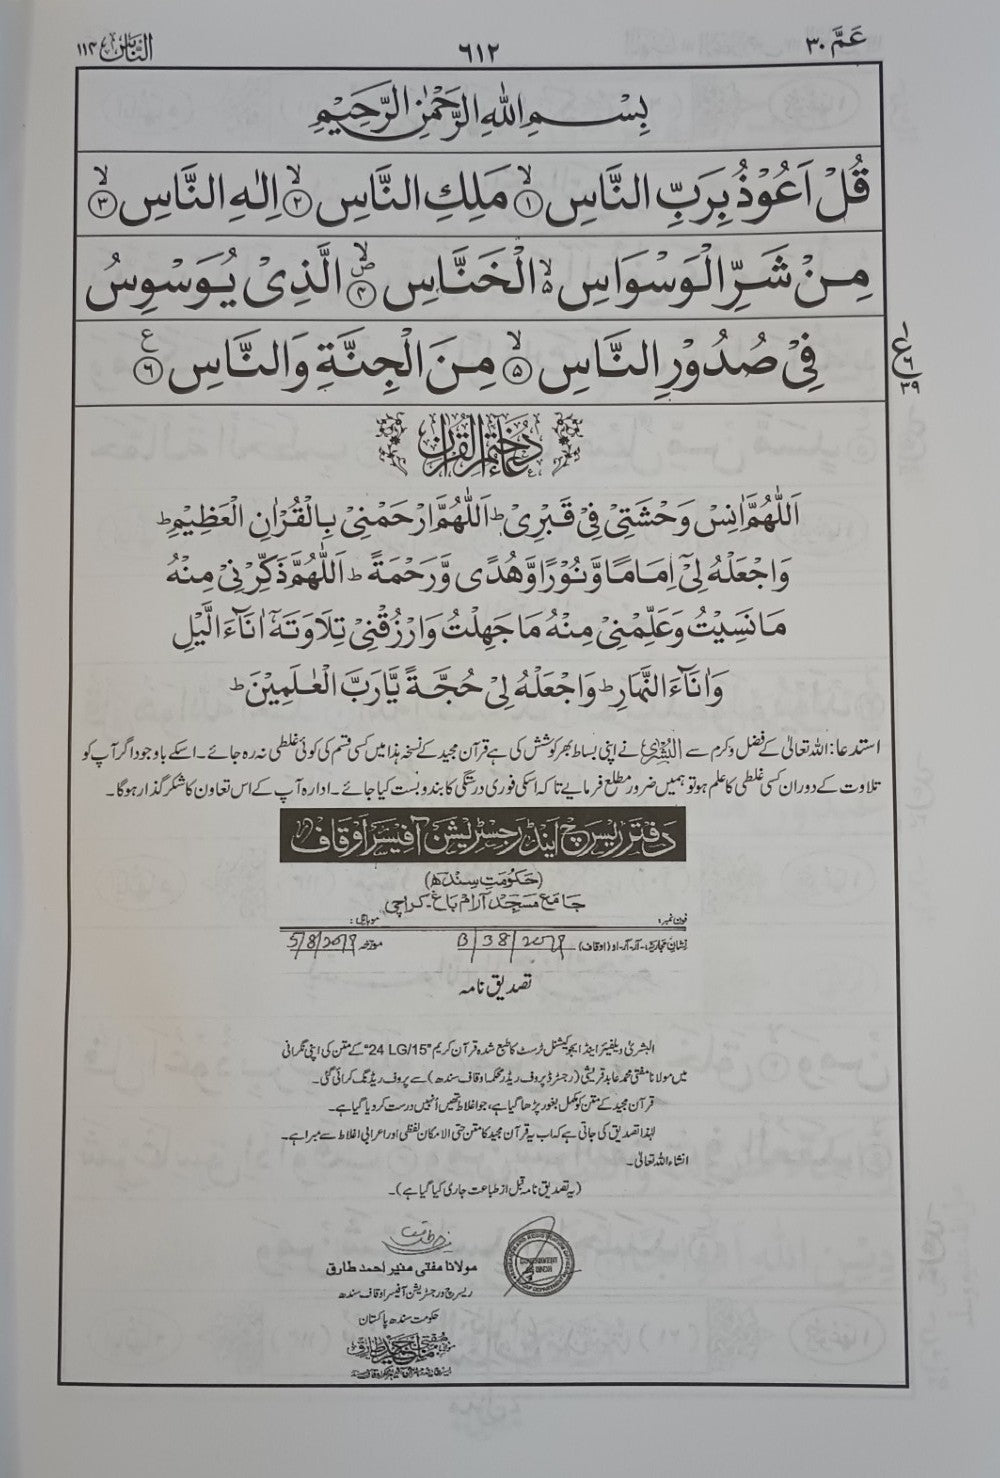 عَمَّ ٣٠
٦١٢
النَّاس ١١٤
بِسْمِ اللّٰهِ الرَّحْمٰنِ الرَّحِيْمِ
قُلْ اَعُوْذُ بِرَبِّ النَّاسِ ۙ﴿۱﴾ مَلِكِ النَّاسِ ۙ﴿۲﴾ اِلٰهِ النَّاسِ ۙ﴿۳﴾
مِنْ شَرِّ الْوَسْوَاسِ ۙ۬ الْخَنَّاسِ ۪ۙ﴿۴﴾ الَّذِیْ یُوَسْوِسُ
فِیْ صُدُوْرِ النَّاسِ ۙ﴿۵﴾ مِنَ الْجِنَّةِ وَالنَّاسِ ﴿۶﴾
ع
دُعَاءُ خَتْمِ الْقُرْاٰن
اَللّٰهُمَّ اٰنِسْ وَحْشَتِیْ فِیْ قَبْرِیْ ؕ اَللّٰهُمَّ ارْحَمْنِیْ بِالْقُرْاٰنِ الْعَظِیْمِ ؕ
وَاجْعَلْهُ لِیْۤ اِمَامًا وَّنُوْرًا وَّهُدًی وَّرَحْمَةً ؕ اَللّٰهُمَّ ذَكِّرْنِیْ مِنْهُ
مَا نَسِیْتُ وَعَلِّمْنِیْ مِنْهُ مَا جَهِلْتُ وَارْزُقْنِیْ تِلَاوَتَهٗۤ اٰنَآءَ الَّیْلِ
وَاٰنَآءَ النَّهَارِ ؕ وَاجْعَلْهُ لِیْ حُجَّةً یَّا رَبَّ الْعٰلَمِیْنَ ؕ
استدعا: اللہ تعالیٰ کے فضل وکرم سے البشریٰ نے اپنی بساط بھر کوشش کی ہے قرآن مجید کے نسخہ ہذا میں کسی قسم کی کوئی غلطی نہ رہ جائے۔ اسکے باوجود اگر آپ کو
تلاوت کے دوران کسی غلطی کا علم ہو تو ہمیں ضرور مطلع فرمایے تا کہ اسکی فوری درستگی کا بندوبست کیا جائے۔ ادارہ آپ کے اس تعاون کا شکر گذار ہوگا۔
دفتر ریسرچ اینڈ رجسٹریشن آفیسر اوقاف
(حکومتِ سندھ)
جامع مسجد آرام باغ۔ کراچی
فون نمبر: موبائل:
نشان تجاریہ۔ آر۔ آر۔ او (اوقاف) B/38/2019 مورخہ 5/8/2019
تصدیق نامہ
البشریٰ ویلفیئر اینڈ ایجوکیشنل ٹرسٹ کا طبع شدہ قرآن کریم "24 LG/15" کے متن کی اپنی نگرانی
میں مولانا مفتی محمد عابد قریشی (رجسٹرڈ پروف ریڈر محکمہ اوقاف سندھ) سے پروف ریڈنگ کرائی گئی۔
قرآن مجید کے متن کو مکمل بغور پڑھا گیا ہے، جو اغلاط تھیں اُنہیں درست کر دیا گیا ہے۔
لہٰذا تصدیق کی جاتی ہے کہ اب یہ قرآن مجید کا متن حتی الامکان لفظی اور اعرابی اغلاط سے مبرا ہے۔
انشاء اللہ تعالیٰ۔
(یہ تصدیق نامہ قبل از طباعت جاری کیا گیا ہے)۔
مولانا مفتی منیر احمد طارق
ریسرچ ورجسٹریشن آفیسر اوقاف سندھ
حکومت سندھ پاکستان
GOVERNMENT OF SINDH